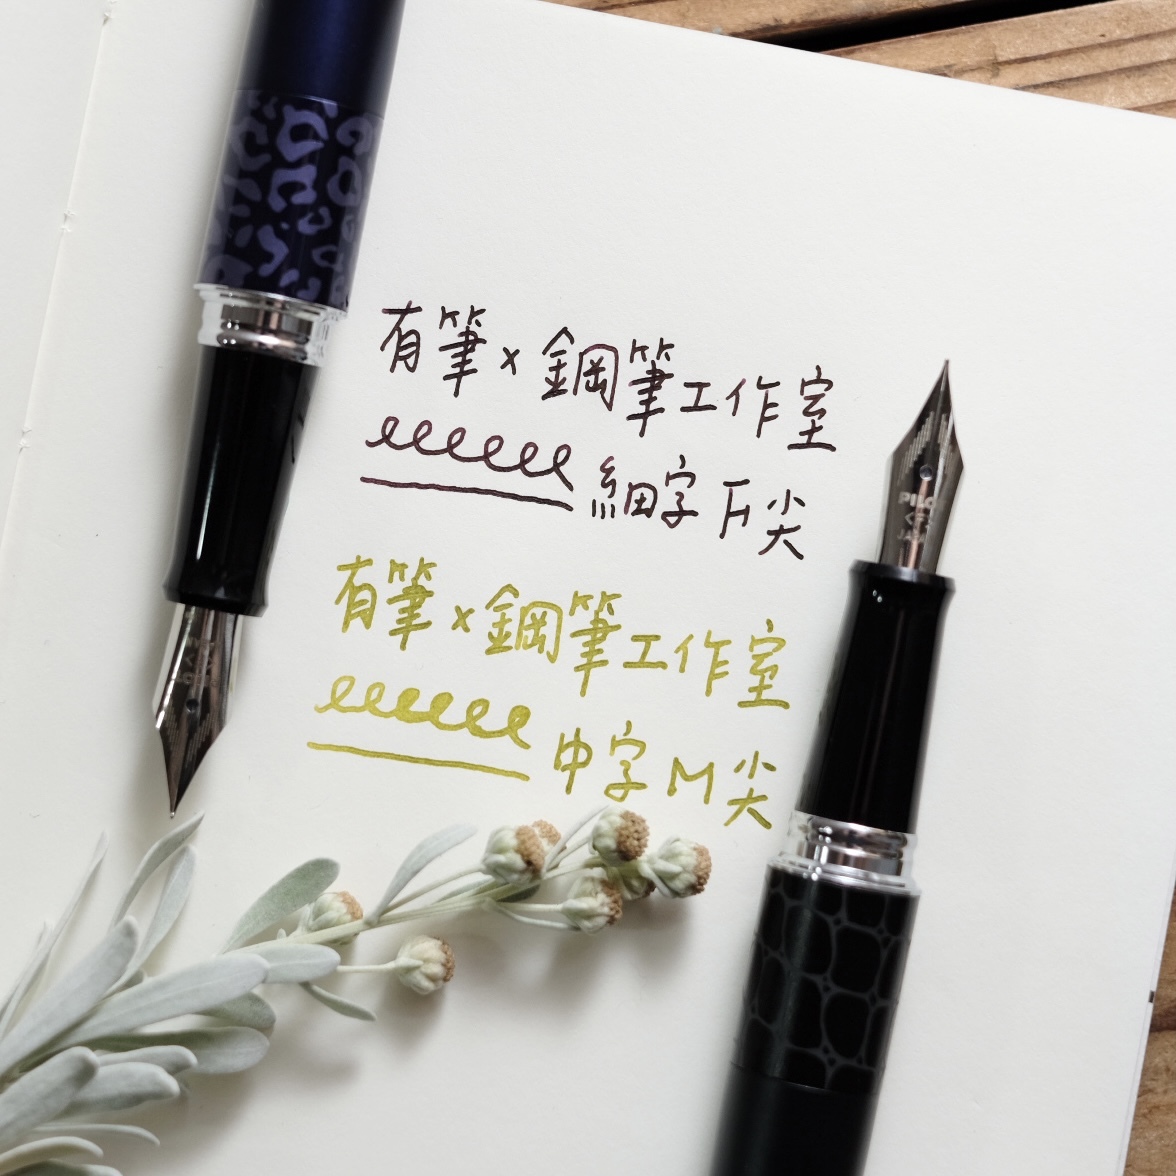 有筆×鋼筆工作室
細字 F尖
有筆×鋼筆工作室
中字 M尖
PILOT
<F>